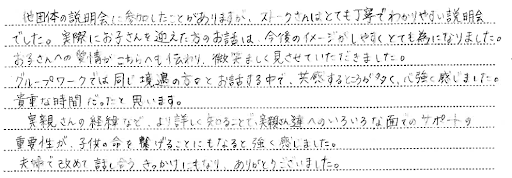 他団体の説明会に参加したことがありますが、ストークさんはとても丁寧でわかりやすい説明会
でした。実際にお子さんを迎えた方のお話は、今後のイメージがしやすくとても為になりました。
お子さんへの愛情がこちらへも伝わり、微笑ましく見させていただきました。
グループワークでは同じ境遇の方々とお話する中で、共感するところが多く、心強く感じました。
貴重な時間だったと思います。
実親さんの経緯など、より詳しく知ることで、実親さん達へのいろいろな面でのサポートの
重要性が、子供の命を繋げることにもなると強く感じました。
夫婦で改めて話し合うきっかけにもなり、ありがとうございました。